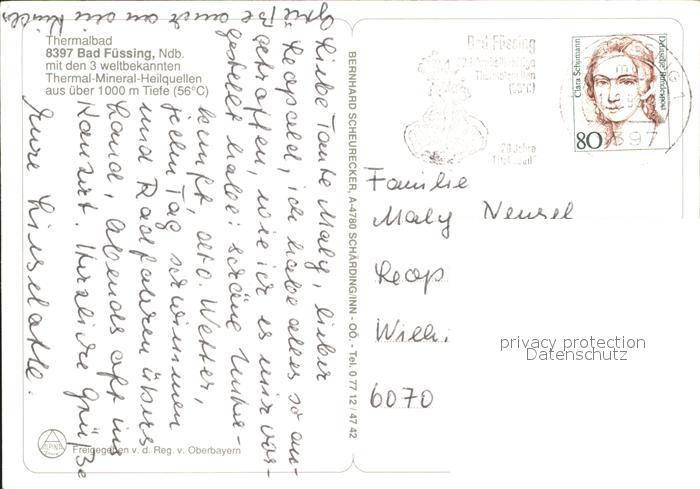 Thermalbad
8397 Bad Füssing, Ndb.
mit den 3 weltbekannten
Thermal-Mineral-Heilquellen
aus über 1000 m Tiefe (56°C)
Liebe Tante Maly, lieber
Leopold, ich habe alles so an-
getroffen, wie ich es mir vor-
gestellt habe: schöne Unter-
kunft, dto. Wetter,
jeden Tag schwimmen
und Radfahren übers
Land, abends oft ins
Konzert. Herzliche Grüße
Eure Liselotte.
Grüße auch an die Kinder
BERNHARD SCHEURECKER, A-4780 SCHÄRDING/INN - OÖ. - Tel. 0 77 12 / 47 42
Bad Füssing
(56°C)
20 Jahre
Clara Schumann
Deutsche Bundespost
80
Familie
Maly Neusel
Leop
Wilh
6070
privacy protection
Datenschutz
ALPINA
Freigegeben v. d. Reg. v. Oberbayern